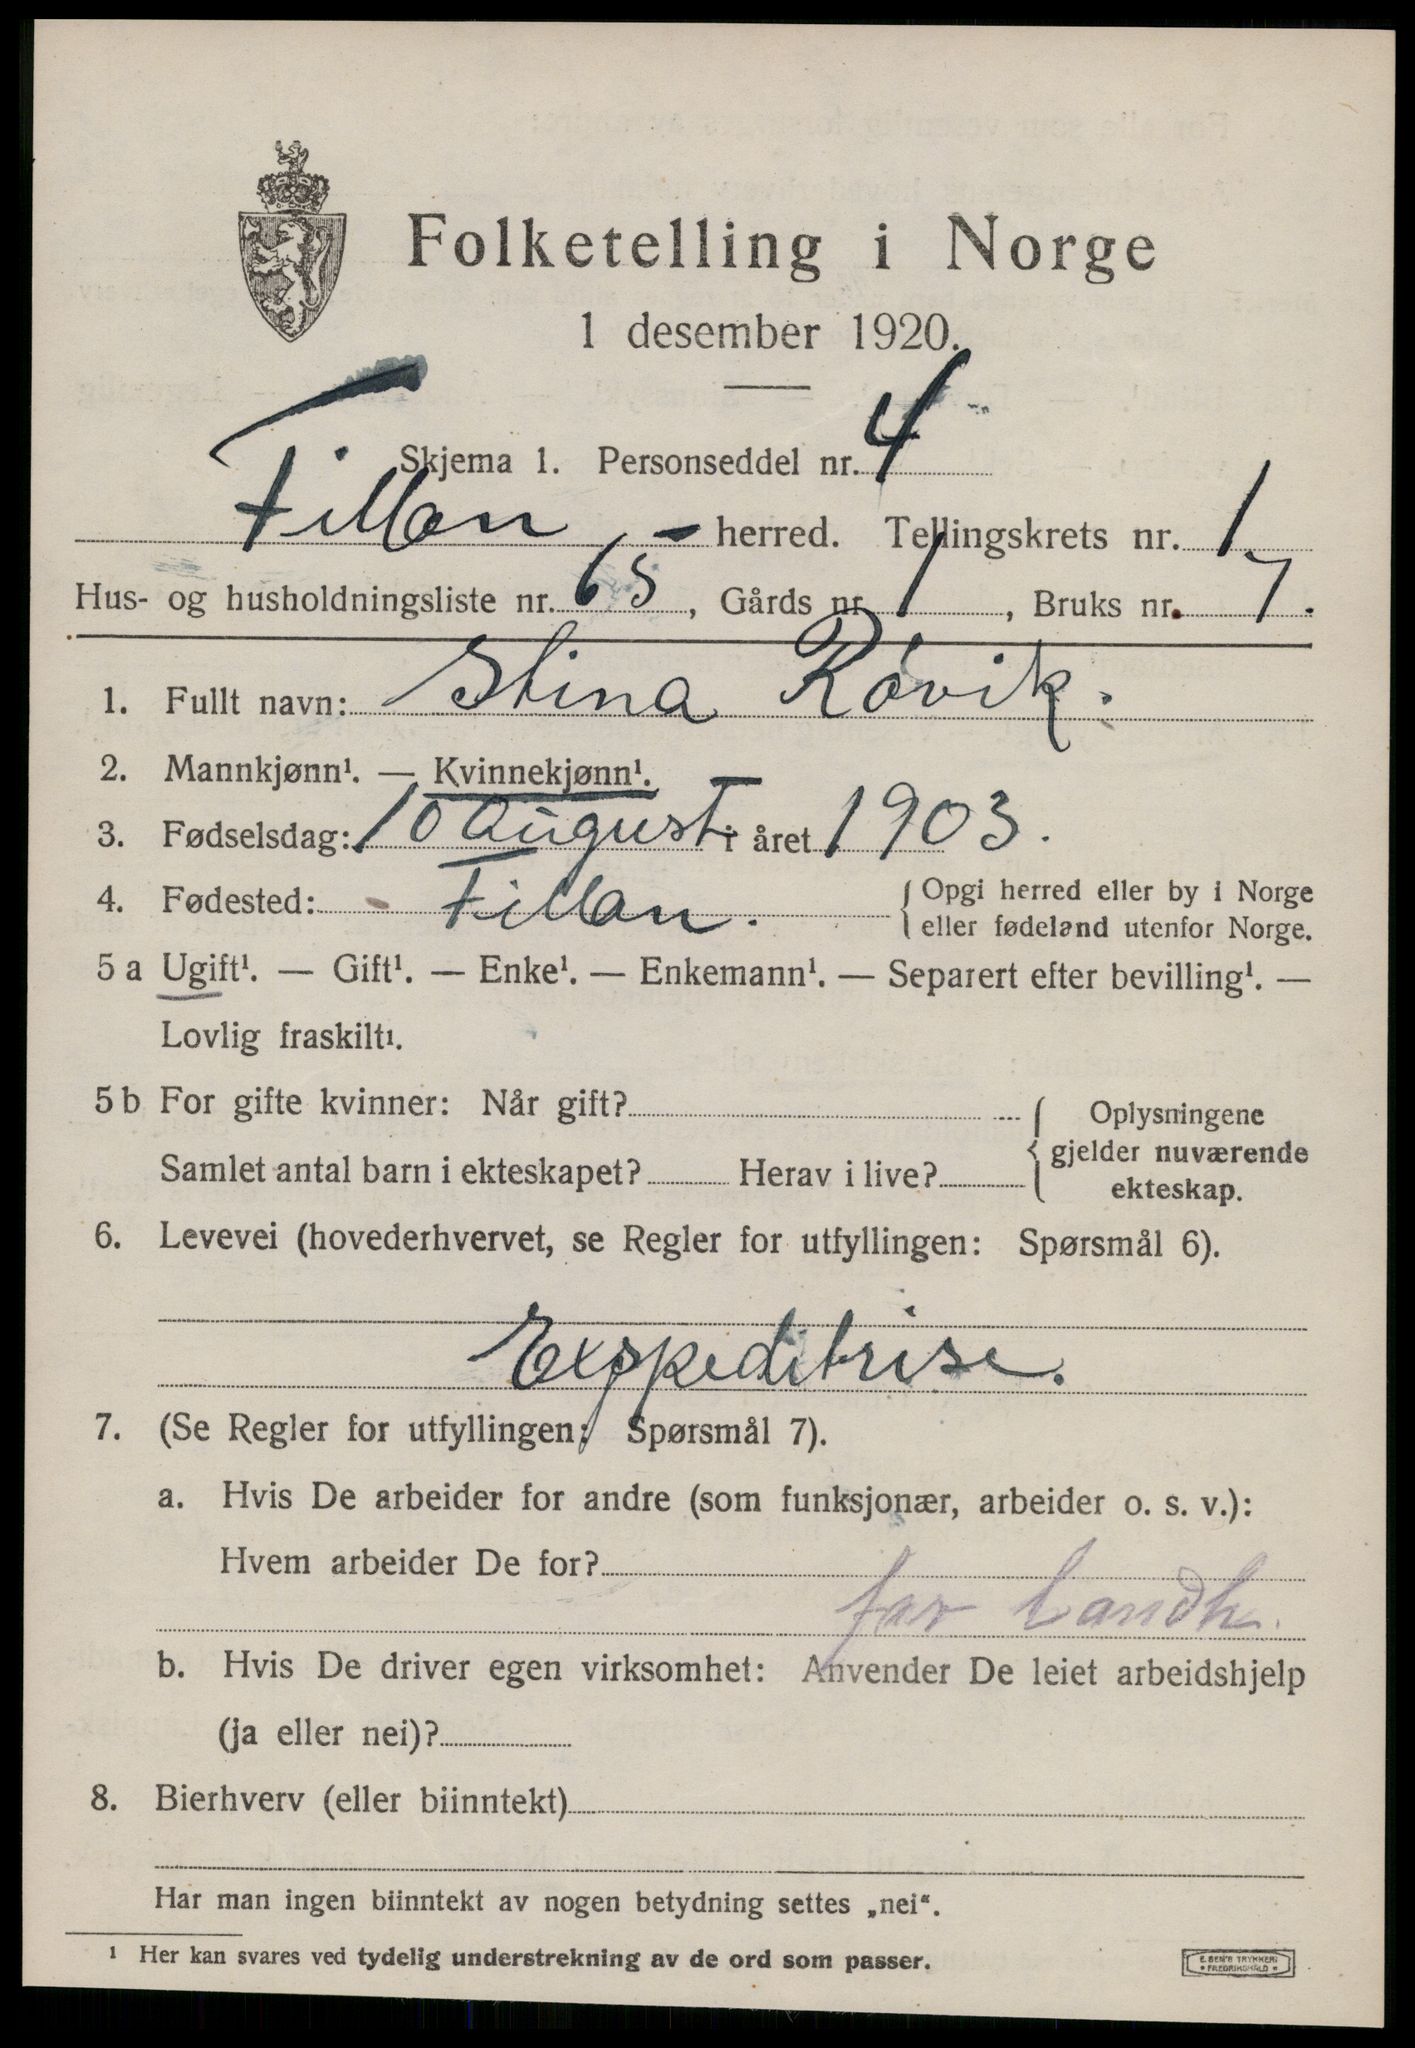 Folketelling i Norge
1 desember 1920.
Skjema 1. Personseddel nr. 4
Fillan herred. Tellingskrets nr. 1
Hus- og husholdningsliste nr. 65, Gårds nr. 1, Bruks nr. 7.
1. Fullt navn: Stina Róvik.
2. Mannkjønn¹. — Kvinnekjønn¹.
3. Fødselsdag: 10 august i året 1903.
4. Fødested: Fillan. { Opgi herred eller by i Norge
eller fødeland utenfor Norge.
5 a Ugift¹. — Gift¹. — Enke¹. — Enkemann¹. — Separert efter bevilling¹. —
Lovlig fraskilt¹.
5 b For gifte kvinner: Når gift? { Oplysningene
gjelder nuværende
Samlet antal barn i ekteskapet? Herav i live?
ekteskap.
6. Levevei (hovederhvervet, se Regler for utfyllingen: Spørsmål 6).
Expeditrise.
7. (Se Regler for utfyllingen: Spørsmål 7).
a. Hvis De arbeider for andre (som funksjonær, arbeider o. s. v.):
Hvem arbeider De for?
far Landh.
b. Hvis De driver egen virksomhet: Anvender De leiet arbeidshjelp
(ja eller nei)?
8. Bierhverv (eller biinntekt)
Har man ingen biinntekt av nogen betydning settes „nei“.
¹ Her kan svares ved tydelig understrekning av de ord som passer.
E. SEM'S TRYKKERI
* FREDRIKSHALD *